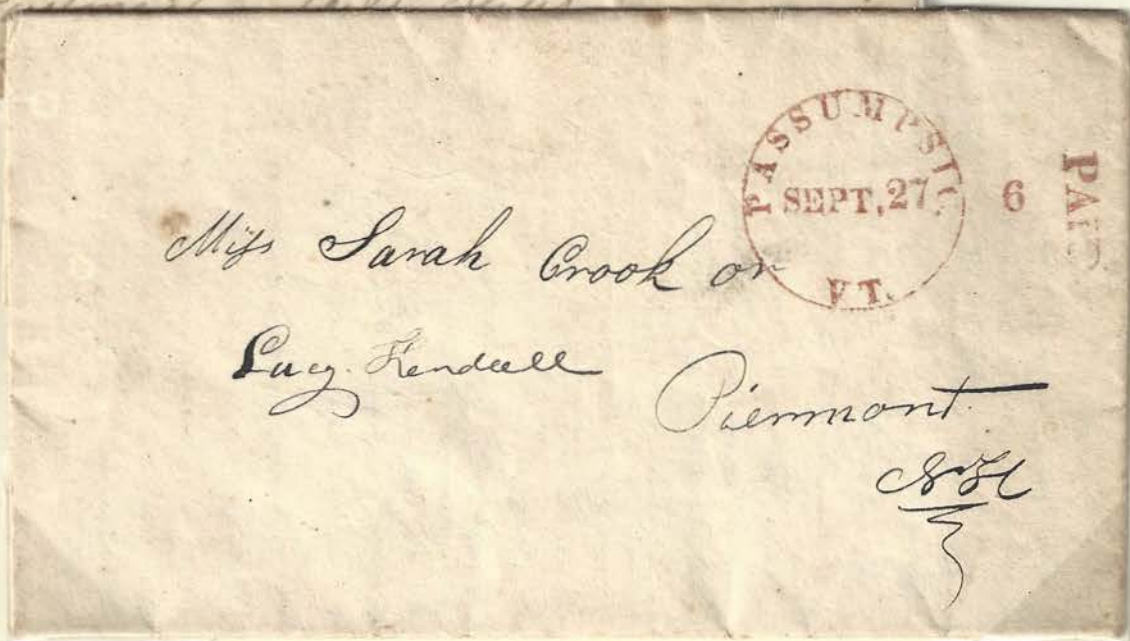 PASSUMPSIC
SEPT. 27.
VT.
6
PAID
Miss Sarah Crook or
Lucy Kendall
Piermont.
NH